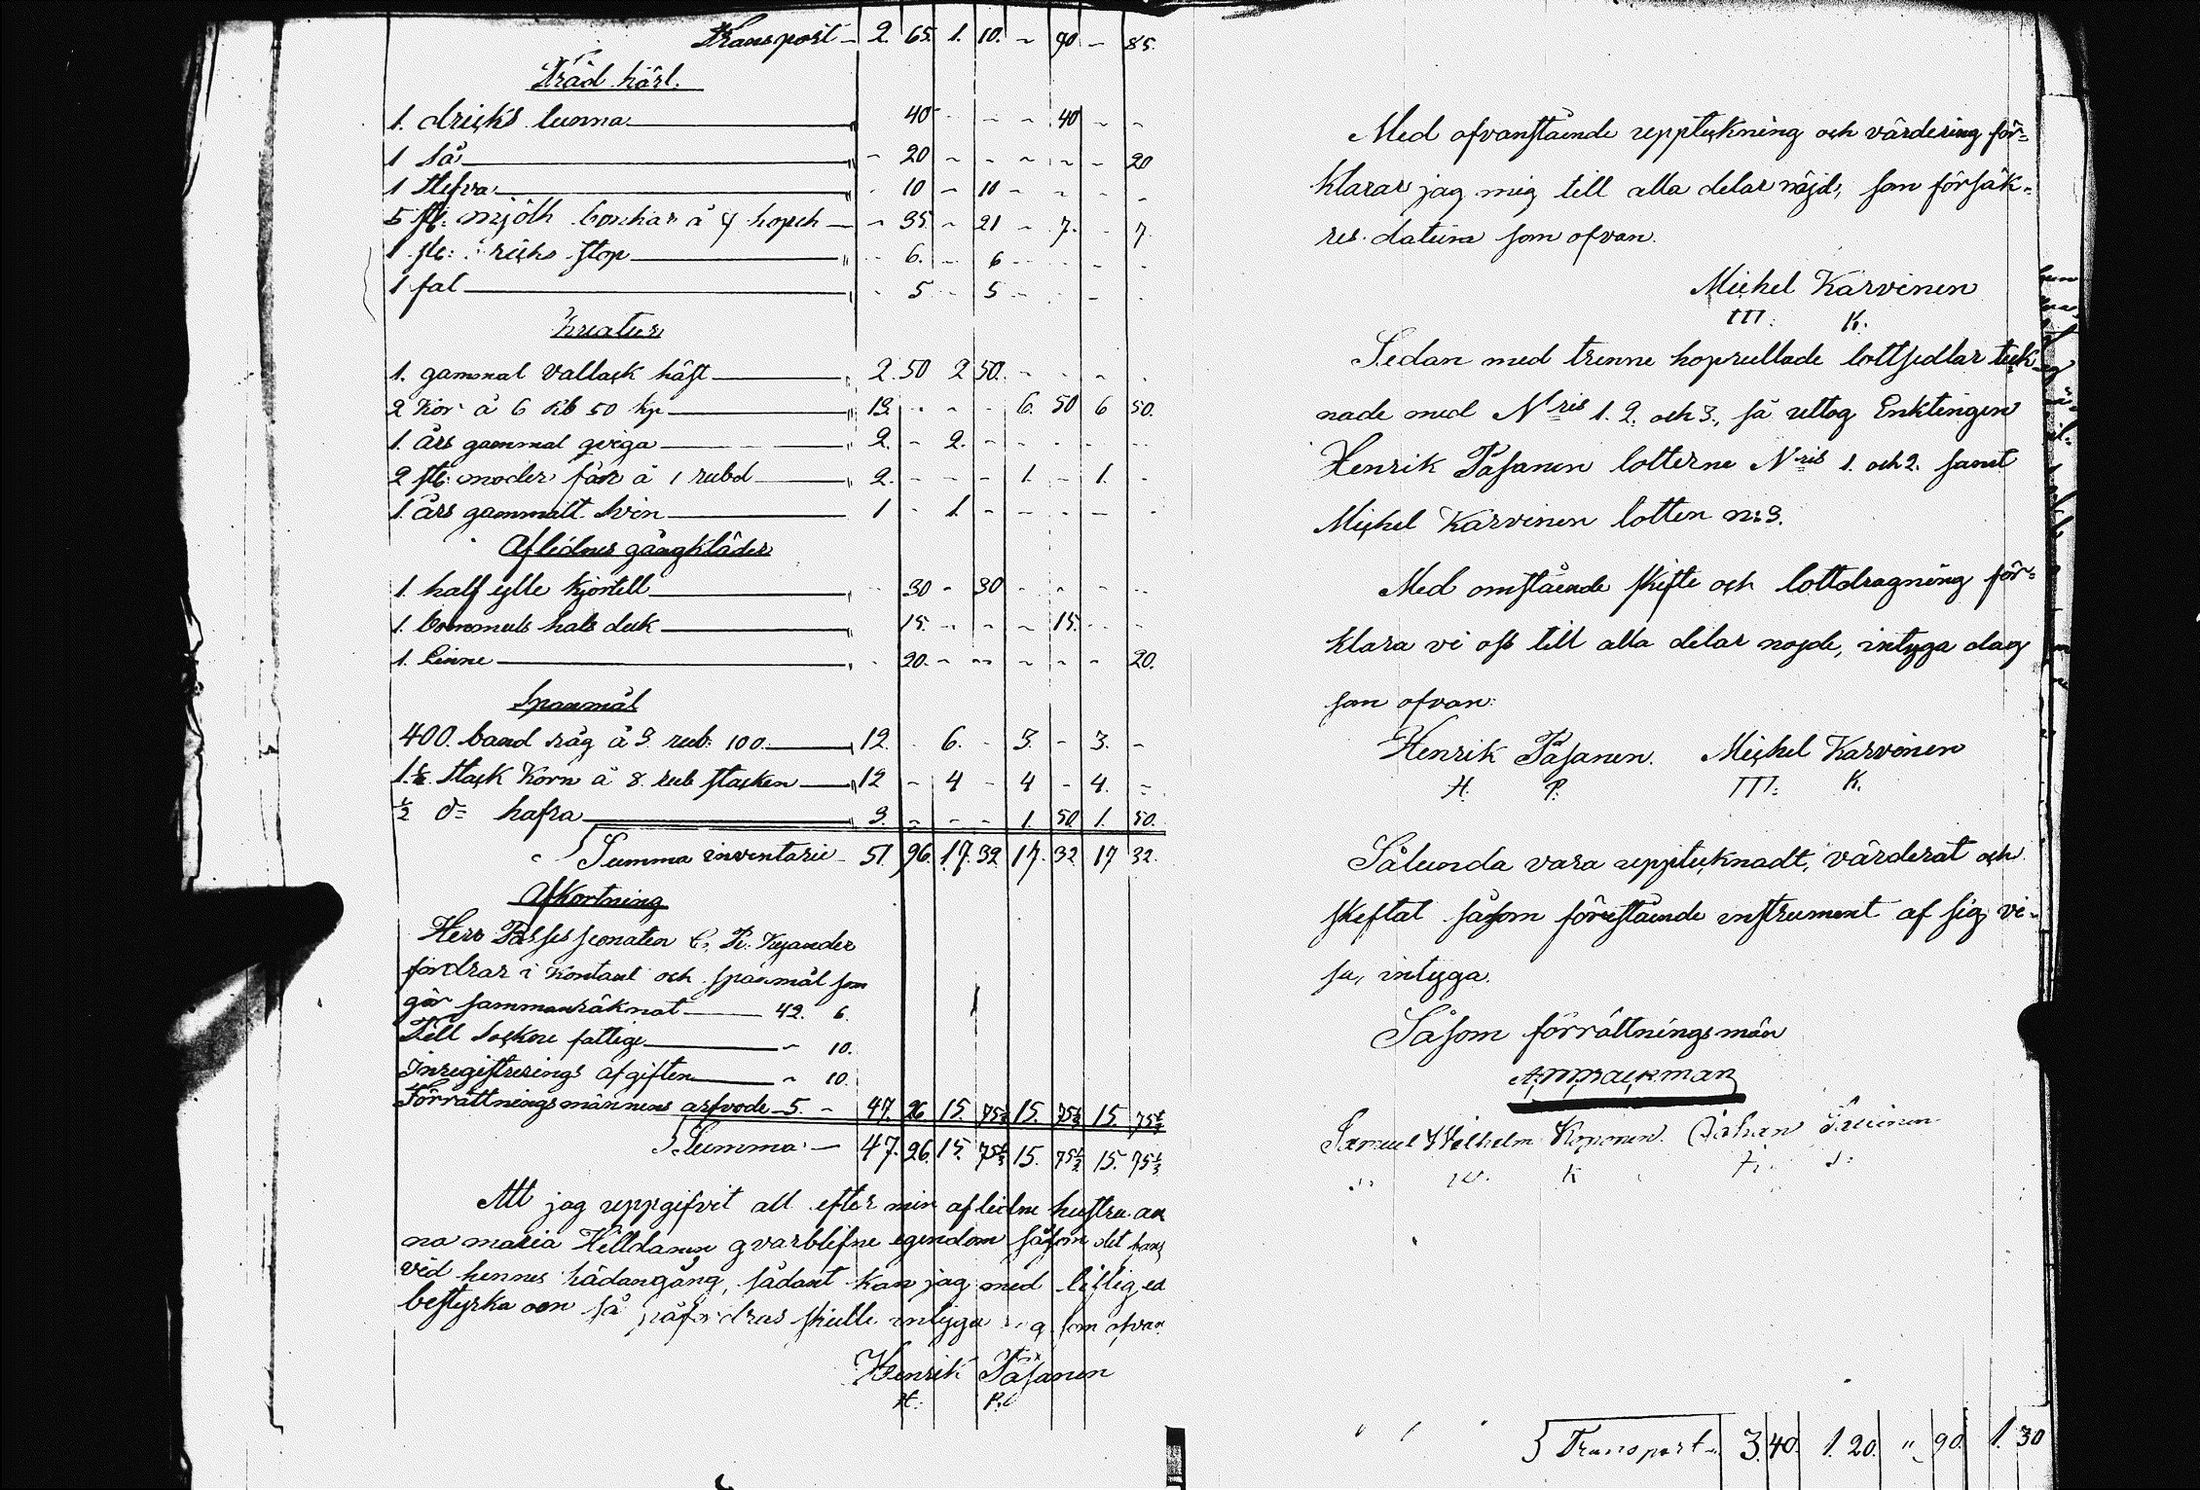 Transport – 2. 65. 1. 10. – 90 – 85.
Träd kärl.
1. dricks tunna 40 – – – 40 – –
1 Så – 20 – – – – – 20
1 Stefva – 10 – 10 – – – –
5 st: mjölk bunkar à 7 kopek – – 35. – 21 – 7. – 7.
1 st: dricks stop – 6. – 6 – – – –
1 fat – 5 – 5 – – – –
Kreatur
1. gammal vallack häst 2. 50 2 50. – – – –
2 Kor à 6 Rb 50 kp 13. – – – 6. 50 6 50.
1. års gammal qviga 2. – 2. – – – – –
2 st: moder får à 1 rubel 2. – – – 1. – 1. –
1. års gammalt Svin 1 – 1. – – – – –
Aflednes gångkläder
1. half ylle kjortell – 30 – 30 – – – –
1. bommuls hals duk 15. – – – 15. – –
1. Linne – 20. – – – – – 20.
Spanmål
400. band råg à 3 rub. 100 12. – 6. – 3. – 3. –
1.½ stack Korn à 8. rub stacken 12 – 4 – 4 – 4. –
½ do hafra 3. – – – 1. 50. 1. 50.
Summa inventarie – 51. 96. 17. 32 17. 32 17 32.
Afkortning
Herr Possessionaten C. R. Kyander
fordrar i Kontant och spanmål som
gör sammanräknat 42. 6.
Till Sockne fattige – 10.
Inregistrerings afgiften – 10.
Förrättningsmännens arfvode 5. – 47. 26 15. 75⅓ 15. 75⅓ 15. 75⅓
Summa – 47. 26. 15. 75⅓ 15. 75⅓ 15. 75⅓
Att jag uppgifvit all efter min aflidne hustru an
na maria Hilldanen qvarblifne egendom såsom det fans
vid hennes hädangång, sådant kan jag med liflig ed
bestyrka om så påfordras skulle intygar som ofvan
Henrik Päsanen
H. P.
Med ofvanstående uppteckning och värdering för=
klarar jag mig till alla delar nöjd, som försäk=
res. datum som ofvan.
Michel Karvinen
M. K.
Sedan med trenne hoprullade lottsedlar teck=
nade med Nris 1. 2. och 3., så uttog Enklingen
Henrik Päsanen lotterne Nris 1. och 2. samt
Michel Karvinen lotten n:3.
Med omstående skifte och lottdragning för=
klara vi oss till alla delar nöjde, intyga dag
som ofvan:
Henrik Päsanen. Michel Karvinen
H. P. M. K.
Sålunda vara upptecknadt, värderat och
skeftat såsom förestående instrument af sig vi=
sa, intyga.
Såsom förrättningsmän
Samuel Wilhelm Koponen. Johan
W. K
Transport – 3. 40. 1. 20. " 90. 1. 30